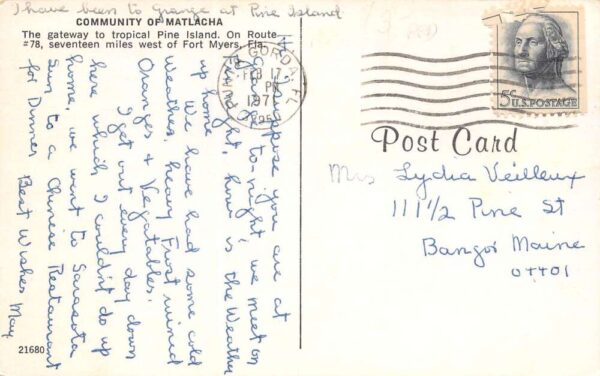 I have been to Grange at Pine Island
COMMUNITY OF MATLACHA
The gateway to tropical Pine Island. On Route
#78, seventeen miles west of Fort Myers, Fla.
suppose you are at
Grange to-night we meet on
night, how is the Weather
up home We have had some cold
weather, heavy Frost ruined
Oranges & Vegatables.
I get out every day down
here which I couldn't do up
home, we went to Sarasota
Sun to a Chinese Restaurant
for Dinner Best Wishes May
21680
GORDA, FL
FEB 17
PM
197
5¢ U.S. POSTAGE
Post Card
Mrs Lydia Veilleux
111 1/2 Pine St
Bangor Maine
04401